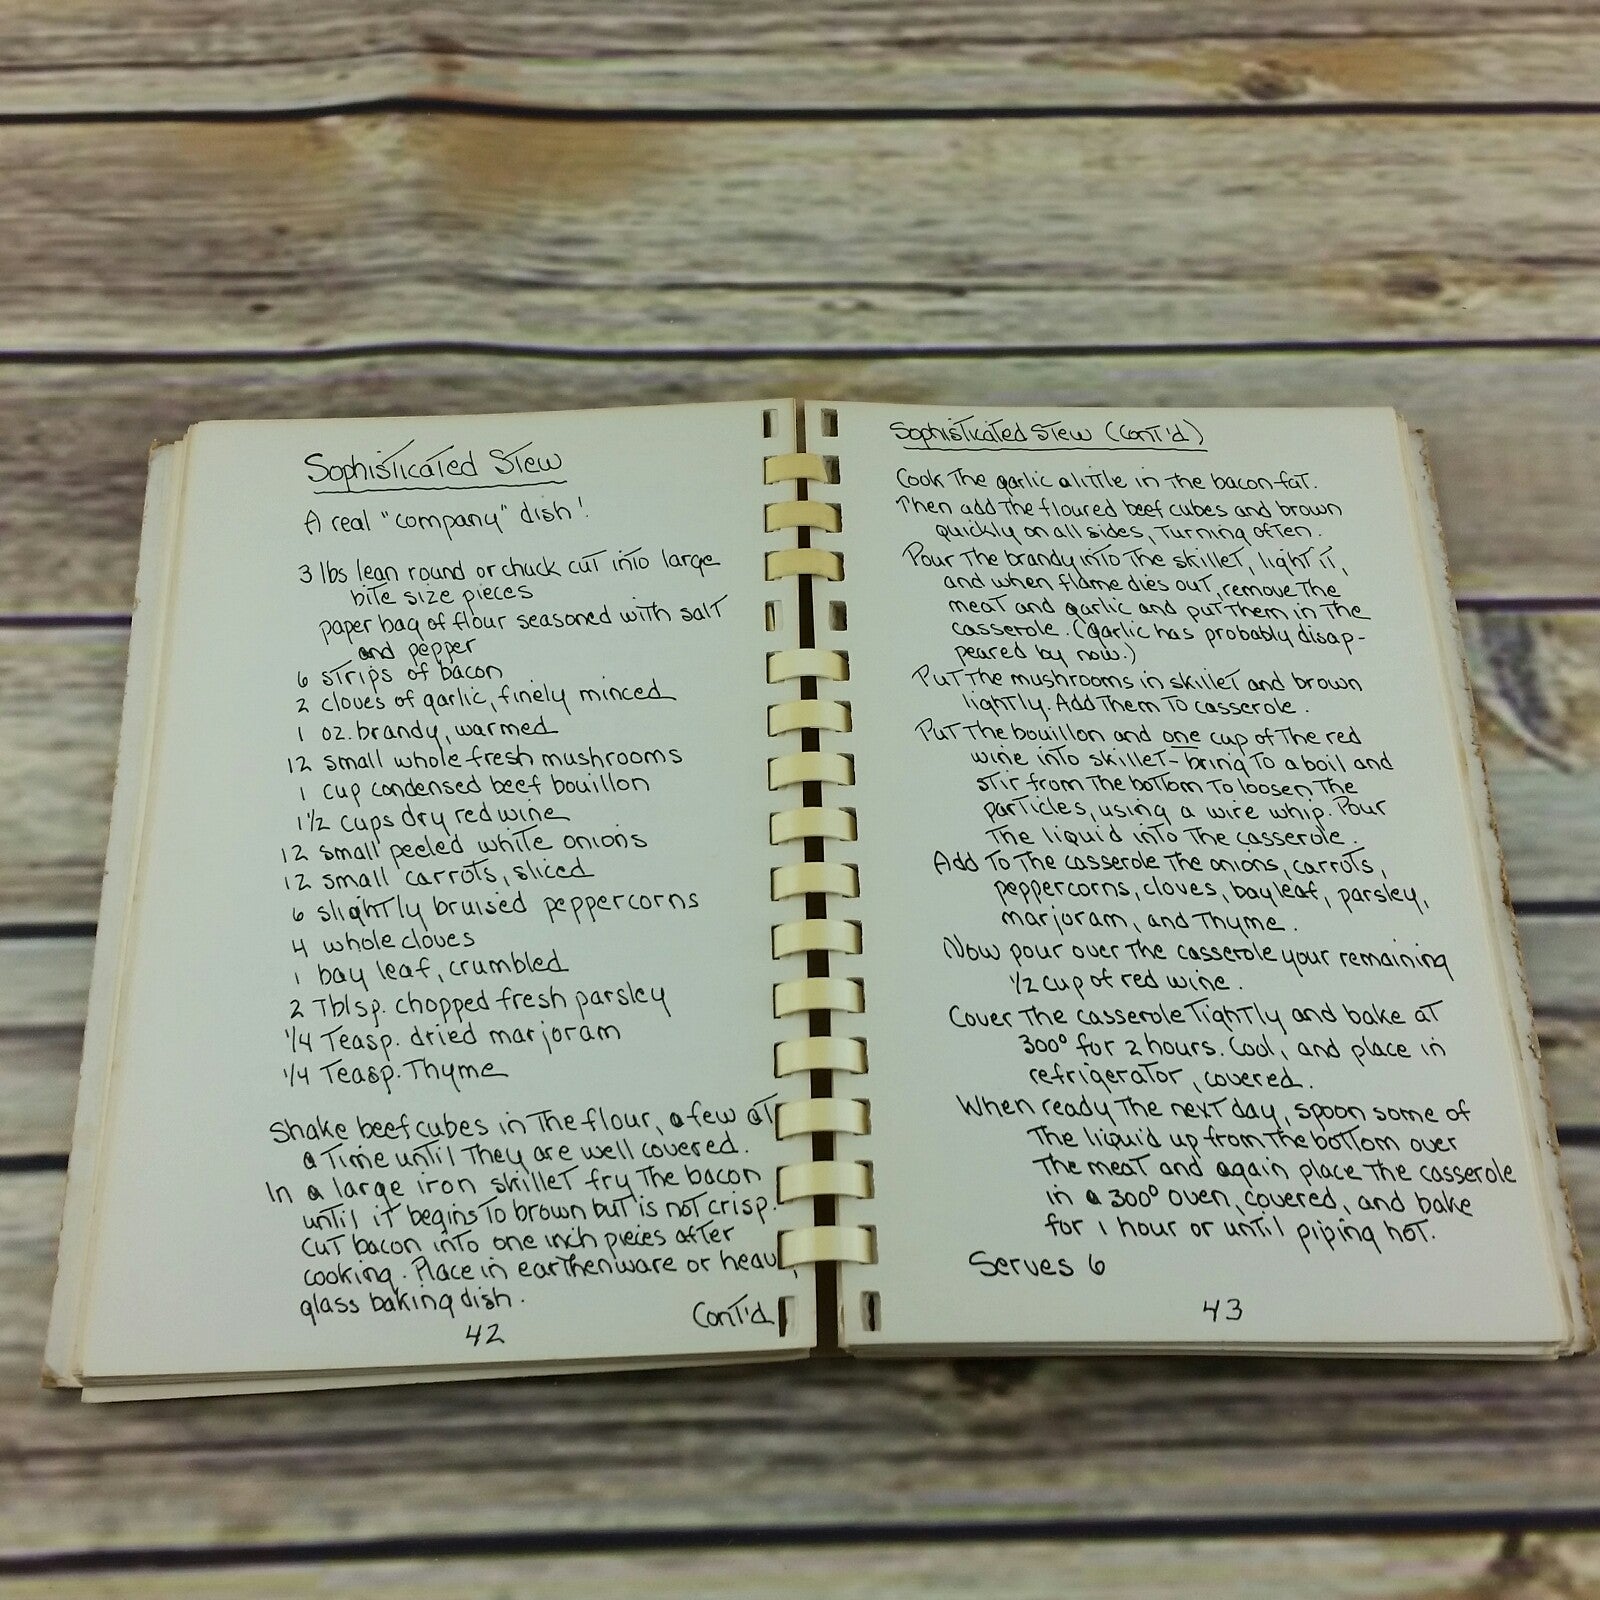 Sophisticated Stew
A real "company" dish!
3 lbs lean round or chuck cut into large
bite size pieces
paper bag of flour seasoned with salt
and pepper
6 strips of bacon
2 cloves of garlic, finely minced
1 oz. brandy, warmed
12 small whole fresh mushrooms
1 cup condensed beef bouillon
1 1/2 cups dry red wine
12 small peeled white onions
12 small carrots, sliced
6 slightly bruised peppercorns
4 whole cloves
1 bay leaf, crumbled
2 Tblsp. chopped fresh parsley
1/4 Teasp. dried marjoram
1/4 Teasp. Thyme
Shake beef cubes in the flour, a few at
a time until they are well covered.
In a large iron skillet fry the bacon
until it begins to brown but is not crisp.
Cut bacon into one inch pieces after
cooking. Place in earthenware or heavy,
glass baking dish.
Cont'd
42
Sophisticated Stew (Cont'd)
Cook the garlic a little in the bacon-fat.
Then add the floured beef cubes and brown
quickly on all sides, turning often.
Pour the brandy into the skillet, light it,
and when flame dies out, remove the
meat and garlic and put them in the
casserole. (garlic has probably disap-
peared by now.)
Put the mushrooms in skillet and brown
lightly. Add them to casserole.
Put the bouillon and one cup of the red
wine into skillet - bring to a boil and
stir from the bottom to loosen the
particles, using a wire whip. Pour
the liquid into the casserole.
Add to the casserole the onions, carrots,
peppercorns, cloves, bay leaf, parsley,
marjoram, and thyme.
Now pour over the casserole your remaining
1/2 cup of red wine.
Cover the casserole tightly and bake at
300° for 2 hours. Cool, and place in
refrigerator, covered.
When ready the next day, spoon some of
the liquid up from the bottom over
the meat and again place the casserole
in a 300° oven, covered, and bake
for 1 hour or until piping hot.
Serves 6
43